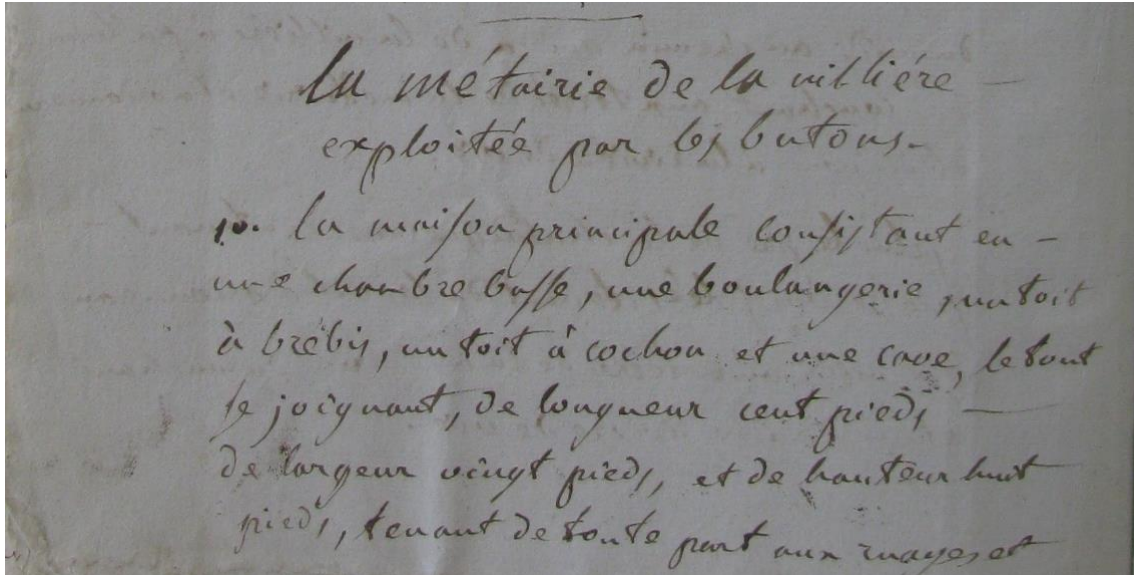 la métairie de la villiére —
exploitée par les butons.
1o. la maison principale consistant en —
une chambre basse, une boulangerie, un toit
à brebis, un toit à cochon et une cave, le tout
se joignant, de longueur cent pieds —
de largeur vingt pieds, et de hauteur huit
pieds, tenant de toute part aux ruages et